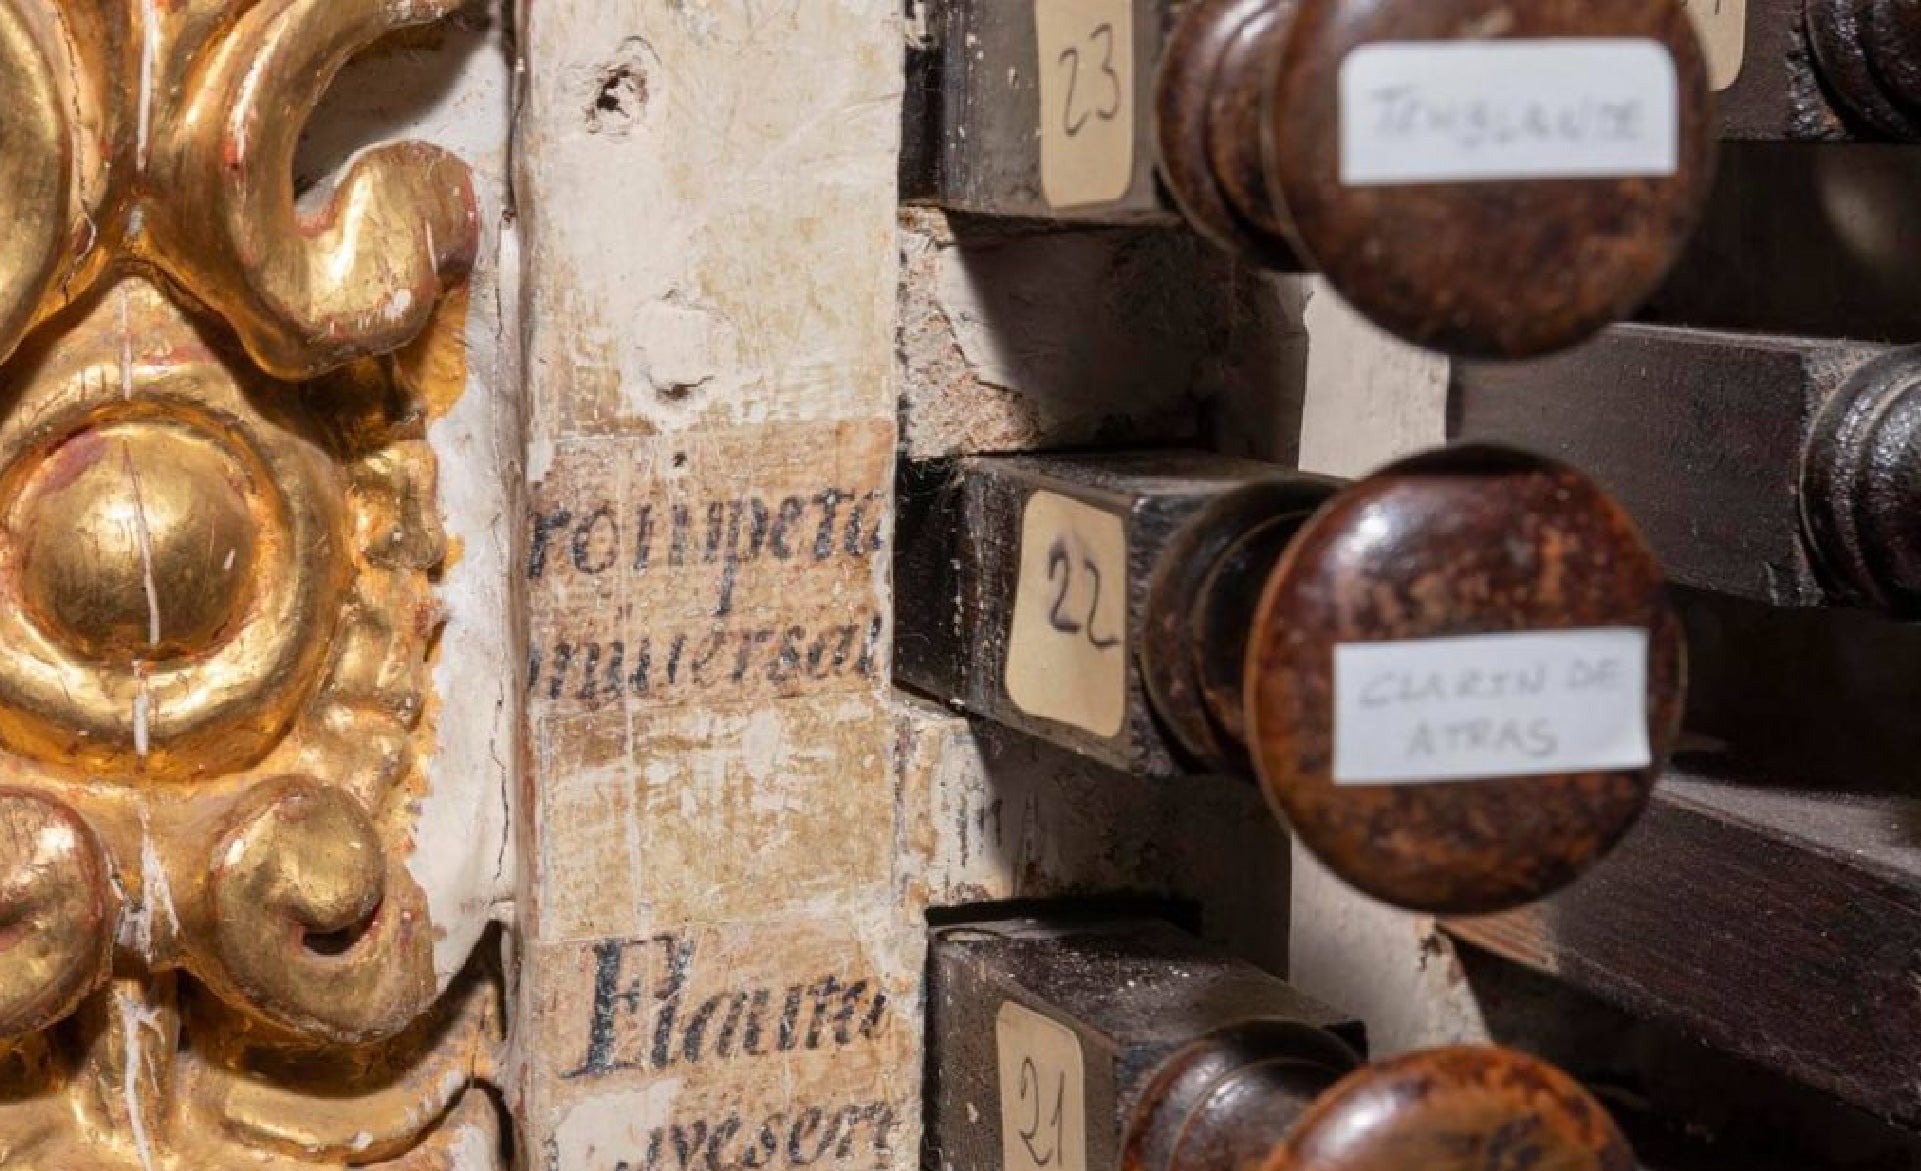 23
TEMBLANTE
rompeta
niversal
22
CLARIN DE
ATRAS
Flauta
21